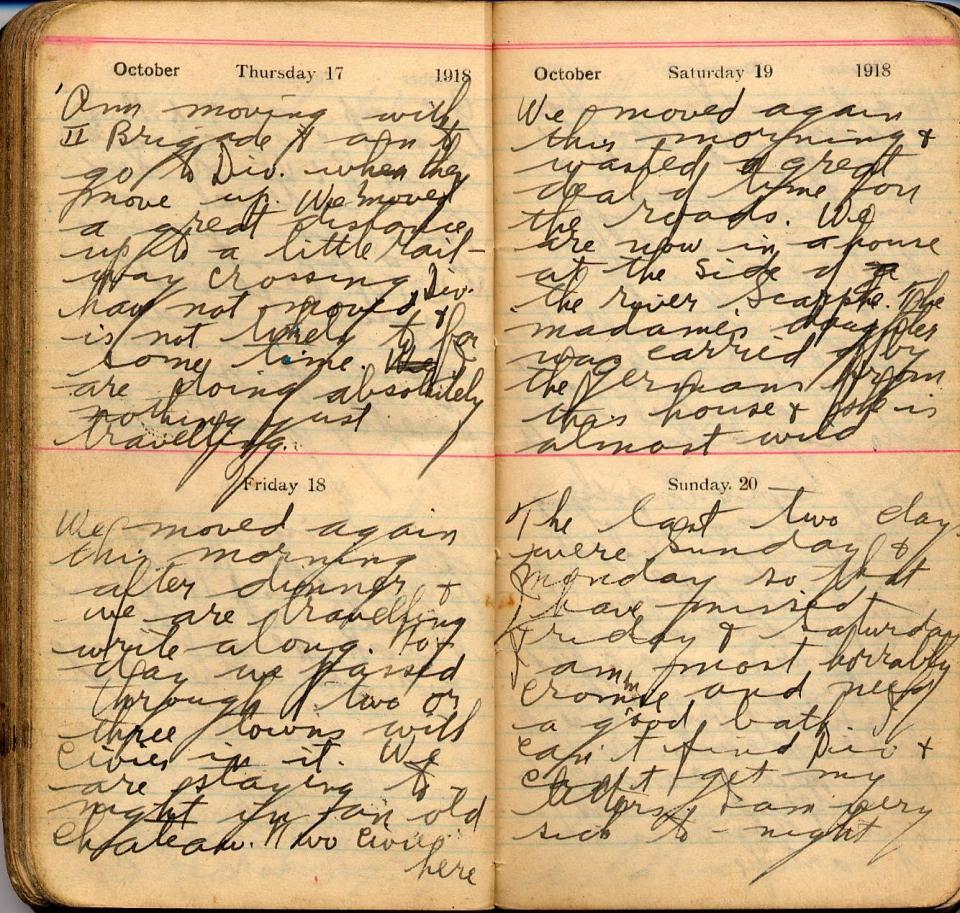 October Thursday 17 1918
Am moving with
II Brigade & am to
go to Div. when they
move up. We moved
a great distance
up to a little rail-
way crossing. Div.
hav not moved &
is not likely to for
some time. We
are doing absolutely
nothing just
travelling.
Friday 18
We moved again
this morning
after dinner &
we are travelling
write along. To-
day we passed
through two or
three towns with
civies in it. We
are staying to-
night in an old
Chateau. Two civies
here
October Saturday 19 1918
We moved again
this morning &
wasted a great
deal of time on
the roads. We
are now in a house
at the side of
the river Scarphe. The
madame's daughter
was carried off by
the germans from
this house & she is
almost wild
Sunday. 20
The last two days
were Sunday &
Monday so that
I have missed
Friday & Saturday
I am most horrably
and need
a good bath. I
can't find Div &
can't get my
letters. I am very
sick to-night